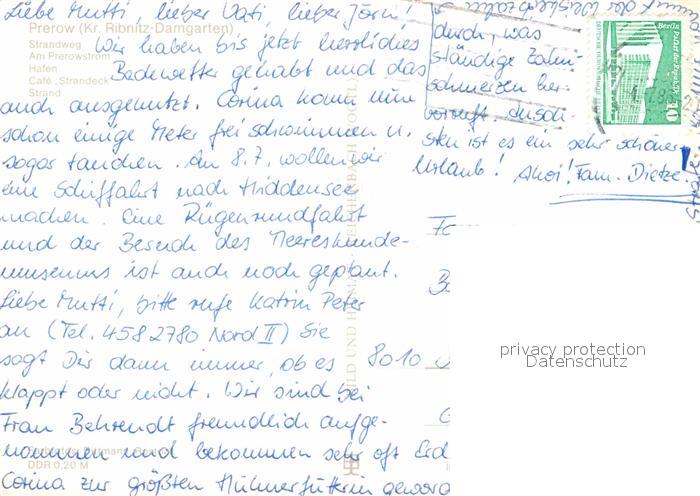 Liebe Mutti, lieber Vati, lieber Jörn!
Prerow (Kr. Ribnitz-Damgarten)
Strandweg
Am Prerowstrom
Hafen
Café „Strandeck"
Strand
Wir haben bis jetzt herrliches
Badewetter gehabt und das
auch ausgenutzt. Corina kann nun
schon einige Meter frei schwimmen u.
sogar tauchen. Am 8.7. wollen wir
eine Schiffahrt nach Hiddensee
machen. Eine Rügenrundfahrt
und der Besuch des Meereskunde-
museums ist auch noch geplant.
Liebe Mutti, bitte rufe Katrin Peter
an (Tel. 458 2780 Nord II) Sie
sagt Dir dann immer, ob es
klappt oder nicht. Wir sind bei
Frau Behrendt freundlich aufge-
nommen und bekommen sehr oft Erd
Corina zur größten Hühnerfütterin geword
DDR 0,20 M
BILD UND HEIMAT REICHENBACH (VOGTL)
durch, was
ständige Zahn-
schmerzen her-
vorruft. Ansch-
sten ist es ein sehr schöner
Urlaub! Ahoi! Fam. Dietze
8010
Berlin, Palast der Republik
10
DDR
privacy protection
Datenschutz